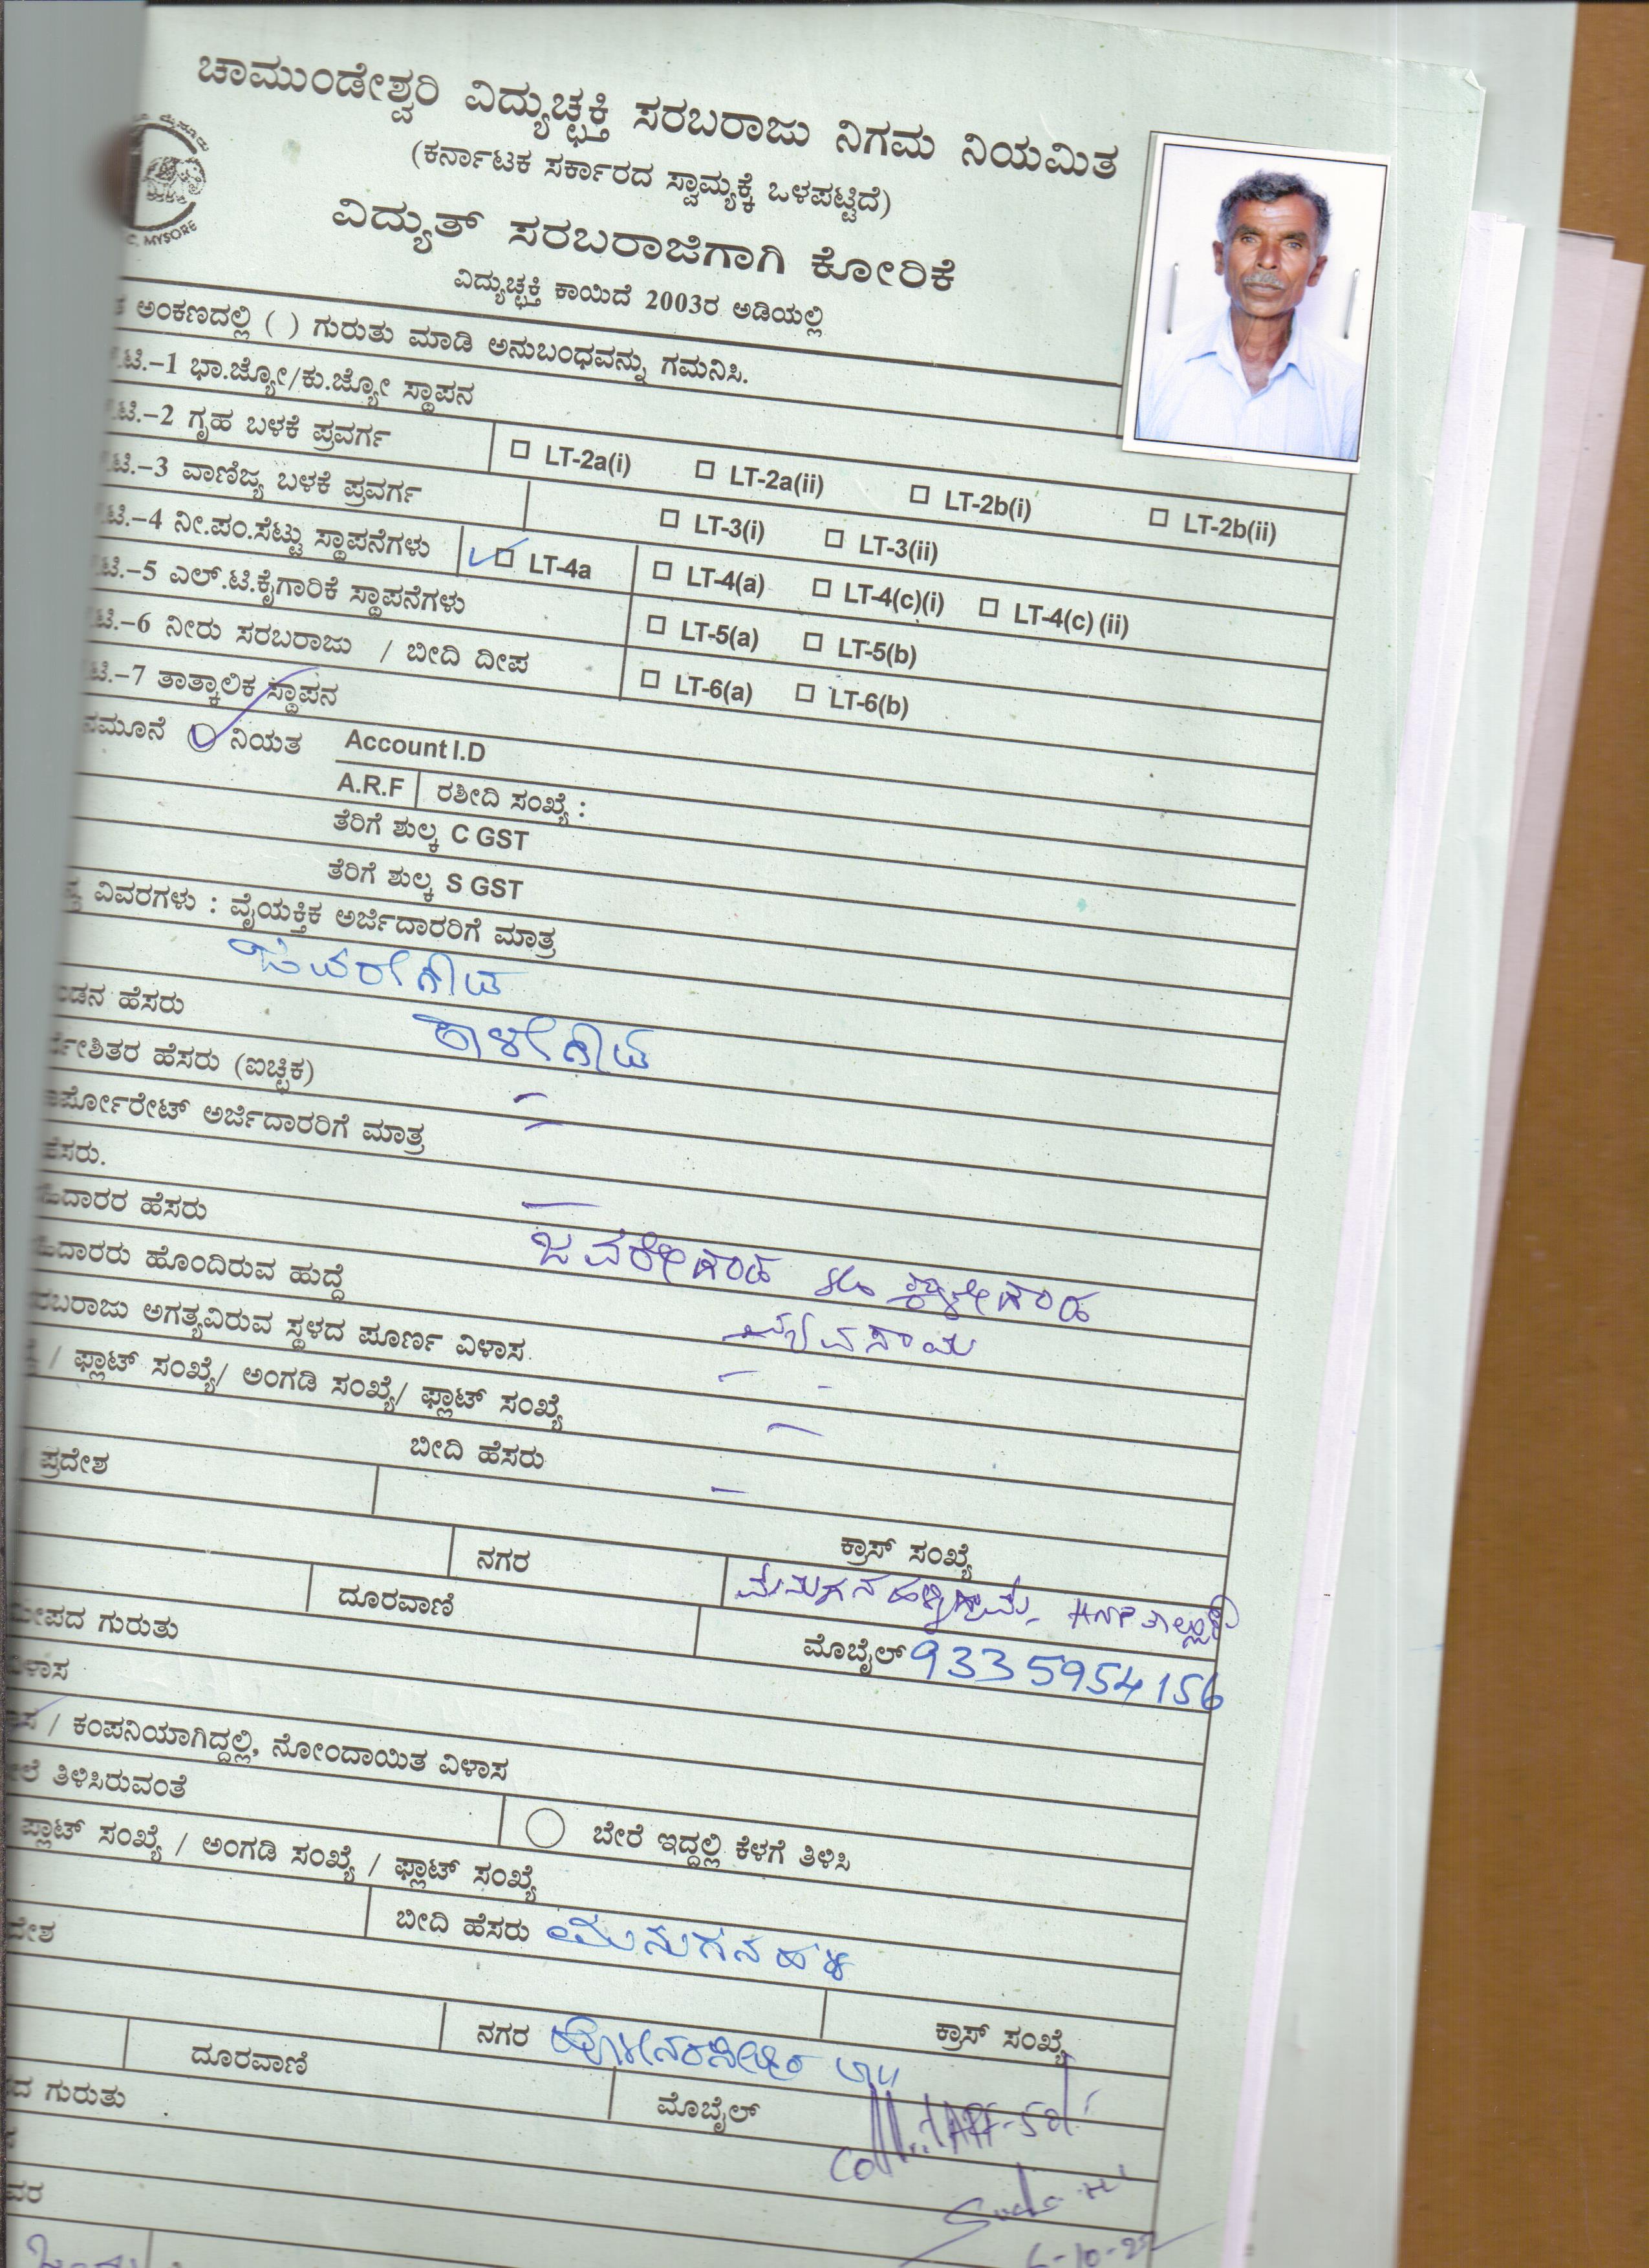 ಚಾಮುಂಡೇಶ್ವರಿ ವಿದ್ಯುಚ್ಛಕ್ತಿ ಸರಬರಾಜು ನಿಗಮ ನಿಯಮಿತ
(ಕರ್ನಾಟಕ ಸರ್ಕಾರದ ಸ್ವಾಮ್ಯಕ್ಕೆ ಒಳಪಟ್ಟಿದೆ)
MYSORE
ವಿದ್ಯುತ್ ಸರಬರಾಜಿಗಾಗಿ ಕೋರಿಕೆ
ವಿದ್ಯುಚ್ಛಕ್ತಿ ಕಾಯಿದೆ 2003ರ ಅಡಿಯಲ್ಲಿ
ಅಂಕಣದಲ್ಲಿ ( ) ಗುರುತು ಮಾಡಿ ಅನುಬಂಧವನ್ನು ಗಮನಿಸಿ.
.ಟಿ.–1 ಭಾ.ಜ್ಯೋ/ಕು.ಜ್ಯೋ ಸ್ಥಾಪನ
.ಟಿ.–2 ಗೃಹ ಬಳಕೆ ಪ್ರವರ್ಗ LT-2a(i) LT-2a(ii) LT-2b(i) LT-2b(ii)
.ಟಿ.–3 ವಾಣಿಜ್ಯ ಬಳಕೆ ಪ್ರವರ್ಗ LT-3(i) LT-3(ii)
.ಟಿ.–4 ನೀ.ಪಂ.ಸೆಟ್ಟು ಸ್ಥಾಪನೆಗಳು LT-4a LT-4(a) LT-4(c)(i) LT-4(c) (ii)
.ಟಿ.–5 ಎಲ್.ಟಿ.ಕೈಗಾರಿಕೆ ಸ್ಥಾಪನೆಗಳು LT-5(a) LT-5(b)
.ಟಿ.–6 ನೀರು ಸರಬರಾಜು / ಬೀದಿ ದೀಪ LT-6(a) LT-6(b)
.ಟಿ.–7 ತಾತ್ಕಾಲಿಕ ಸ್ಥಾಪನ
ನಮೂನೆ ನಿಯತ Account I.D
A.R.F ರಶೀದಿ ಸಂಖ್ಯೆ :
ತೆರಿಗೆ ಶುಲ್ಕ C GST
ತೆರಿಗೆ ಶುಲ್ಕ S GST
ವಿವರಗಳು : ವೈಯಕ್ತಿಕ ಅರ್ಜಿದಾರರಿಗೆ ಮಾತ್ರ
ಜವರೇಗೌಡ
ಹೆಸರು ಕಾಳೇಗೌಡ
ಹೆಸರು (ಐಚ್ಛಿಕ) –
ಅರ್ಜಿದಾರರಿಗೆ ಮಾತ್ರ –
ಹೆಸರು. –
ಹೆಸರು ಜವರೇಗೌಡ S/o ಕಾಳೇಗೌಡ
ಹೊಂದಿರುವ ಹುದ್ದೆ ವ್ಯವಸಾಯ
ಅಗತ್ಯವಿರುವ ಸ್ಥಳದ ಪೂರ್ಣ ವಿಳಾಸ – -
/ ಫ್ಲಾಟ್ ಸಂಖ್ಯೆ/ ಅಂಗಡಿ ಸಂಖ್ಯೆ/ ಫ್ಲಾಟ್ ಸಂಖ್ಯೆ –
ಪ್ರದೇಶ ಬೀದಿ ಹೆಸರು –
ನಗರ ಕ್ರಾಸ್ ಸಂಖ್ಯೆ
ದೂರವಾಣಿ HNP ತಾಲ್ಲೂಕು
ಗುರುತು ಮೊಬೈಲ್ 9335954156
ವಿಳಾಸ
/ ಕಂಪನಿಯಾಗಿದ್ದಲ್ಲಿ, ನೋಂದಾಯಿತ ವಿಳಾಸ
ತಿಳಿಸಿರುವಂತೆ ಬೇರೆ ಇದ್ದಲ್ಲಿ ಕೆಳಗೆ ತಿಳಿಸಿ
ಪ್ಲಾಟ್ ಸಂಖ್ಯೆ / ಅಂಗಡಿ ಸಂಖ್ಯೆ / ಫ್ಲಾಟ್ ಸಂಖ್ಯೆ
ಬೀದಿ ಹೆಸರು ಮನುಗನಹಳ್ಳಿ
ನಗರ ಕ್ರಾಸ್ ಸಂಖ್ಯೆ
ದೂರವಾಣಿ ಮೊಬೈಲ್
ಗುರುತು
6-10-22